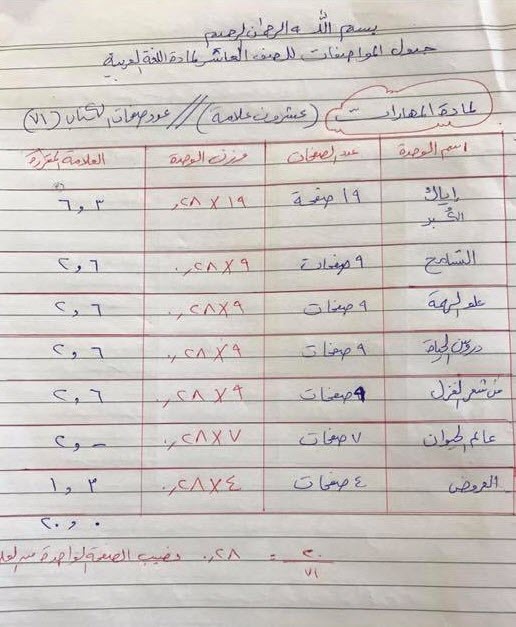 بسم الله الرحمن الرحيم
جدول المواصفات للصف العاشر لمادة اللغة العربية
لمادة المهارات (عشرون علامة) // عدد صفحات الكتاب (٧١)
اسم الوحدة عدد الصفحات وزن الوحدة العلامة المقررة
إياك والكبر ١٩ صفحة ١٩ × ٢٨ر. ٣ و ٦
التسامح ٩ صفحات ٩ × ٢٨ر. ٦ و ٢
علو الهمة ٩ صفحات ٩ × ٢٨ر. ٦ و ٢
دروس الحياة ٩ صفحات ٩ × ٢٨ر. ٦ و ٢
من شعر الغزل ٩ صفحات ٩ × ٢٨ر. ٦ و ٢
عالم الحيوان ٧ صفحات ٧ × ٢٨ر. ٠ و ٢
العروض ٤ صفحات ٤ × ٢٨ر. ٣ و ١
٠ و ٢٠
٢٠ / ٧١ = ٢٨ر. نصيب الصفحة الواحدة من